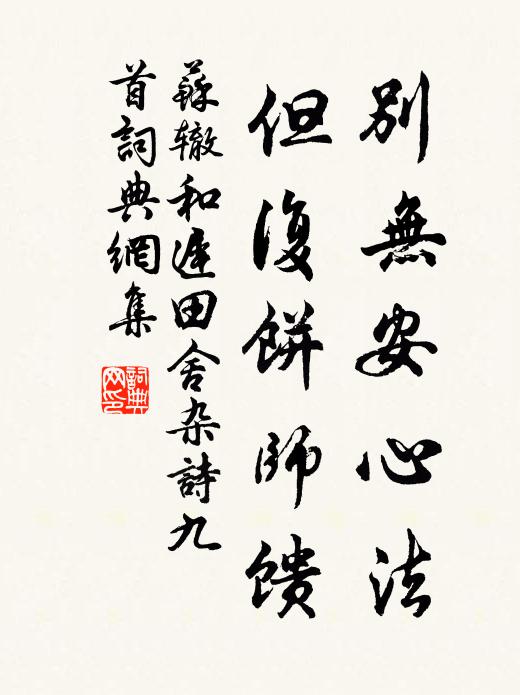 別無安心法
但復餅師馈
蘇辙和遲田舍杂詩九
首詞典網集
詞典
网印